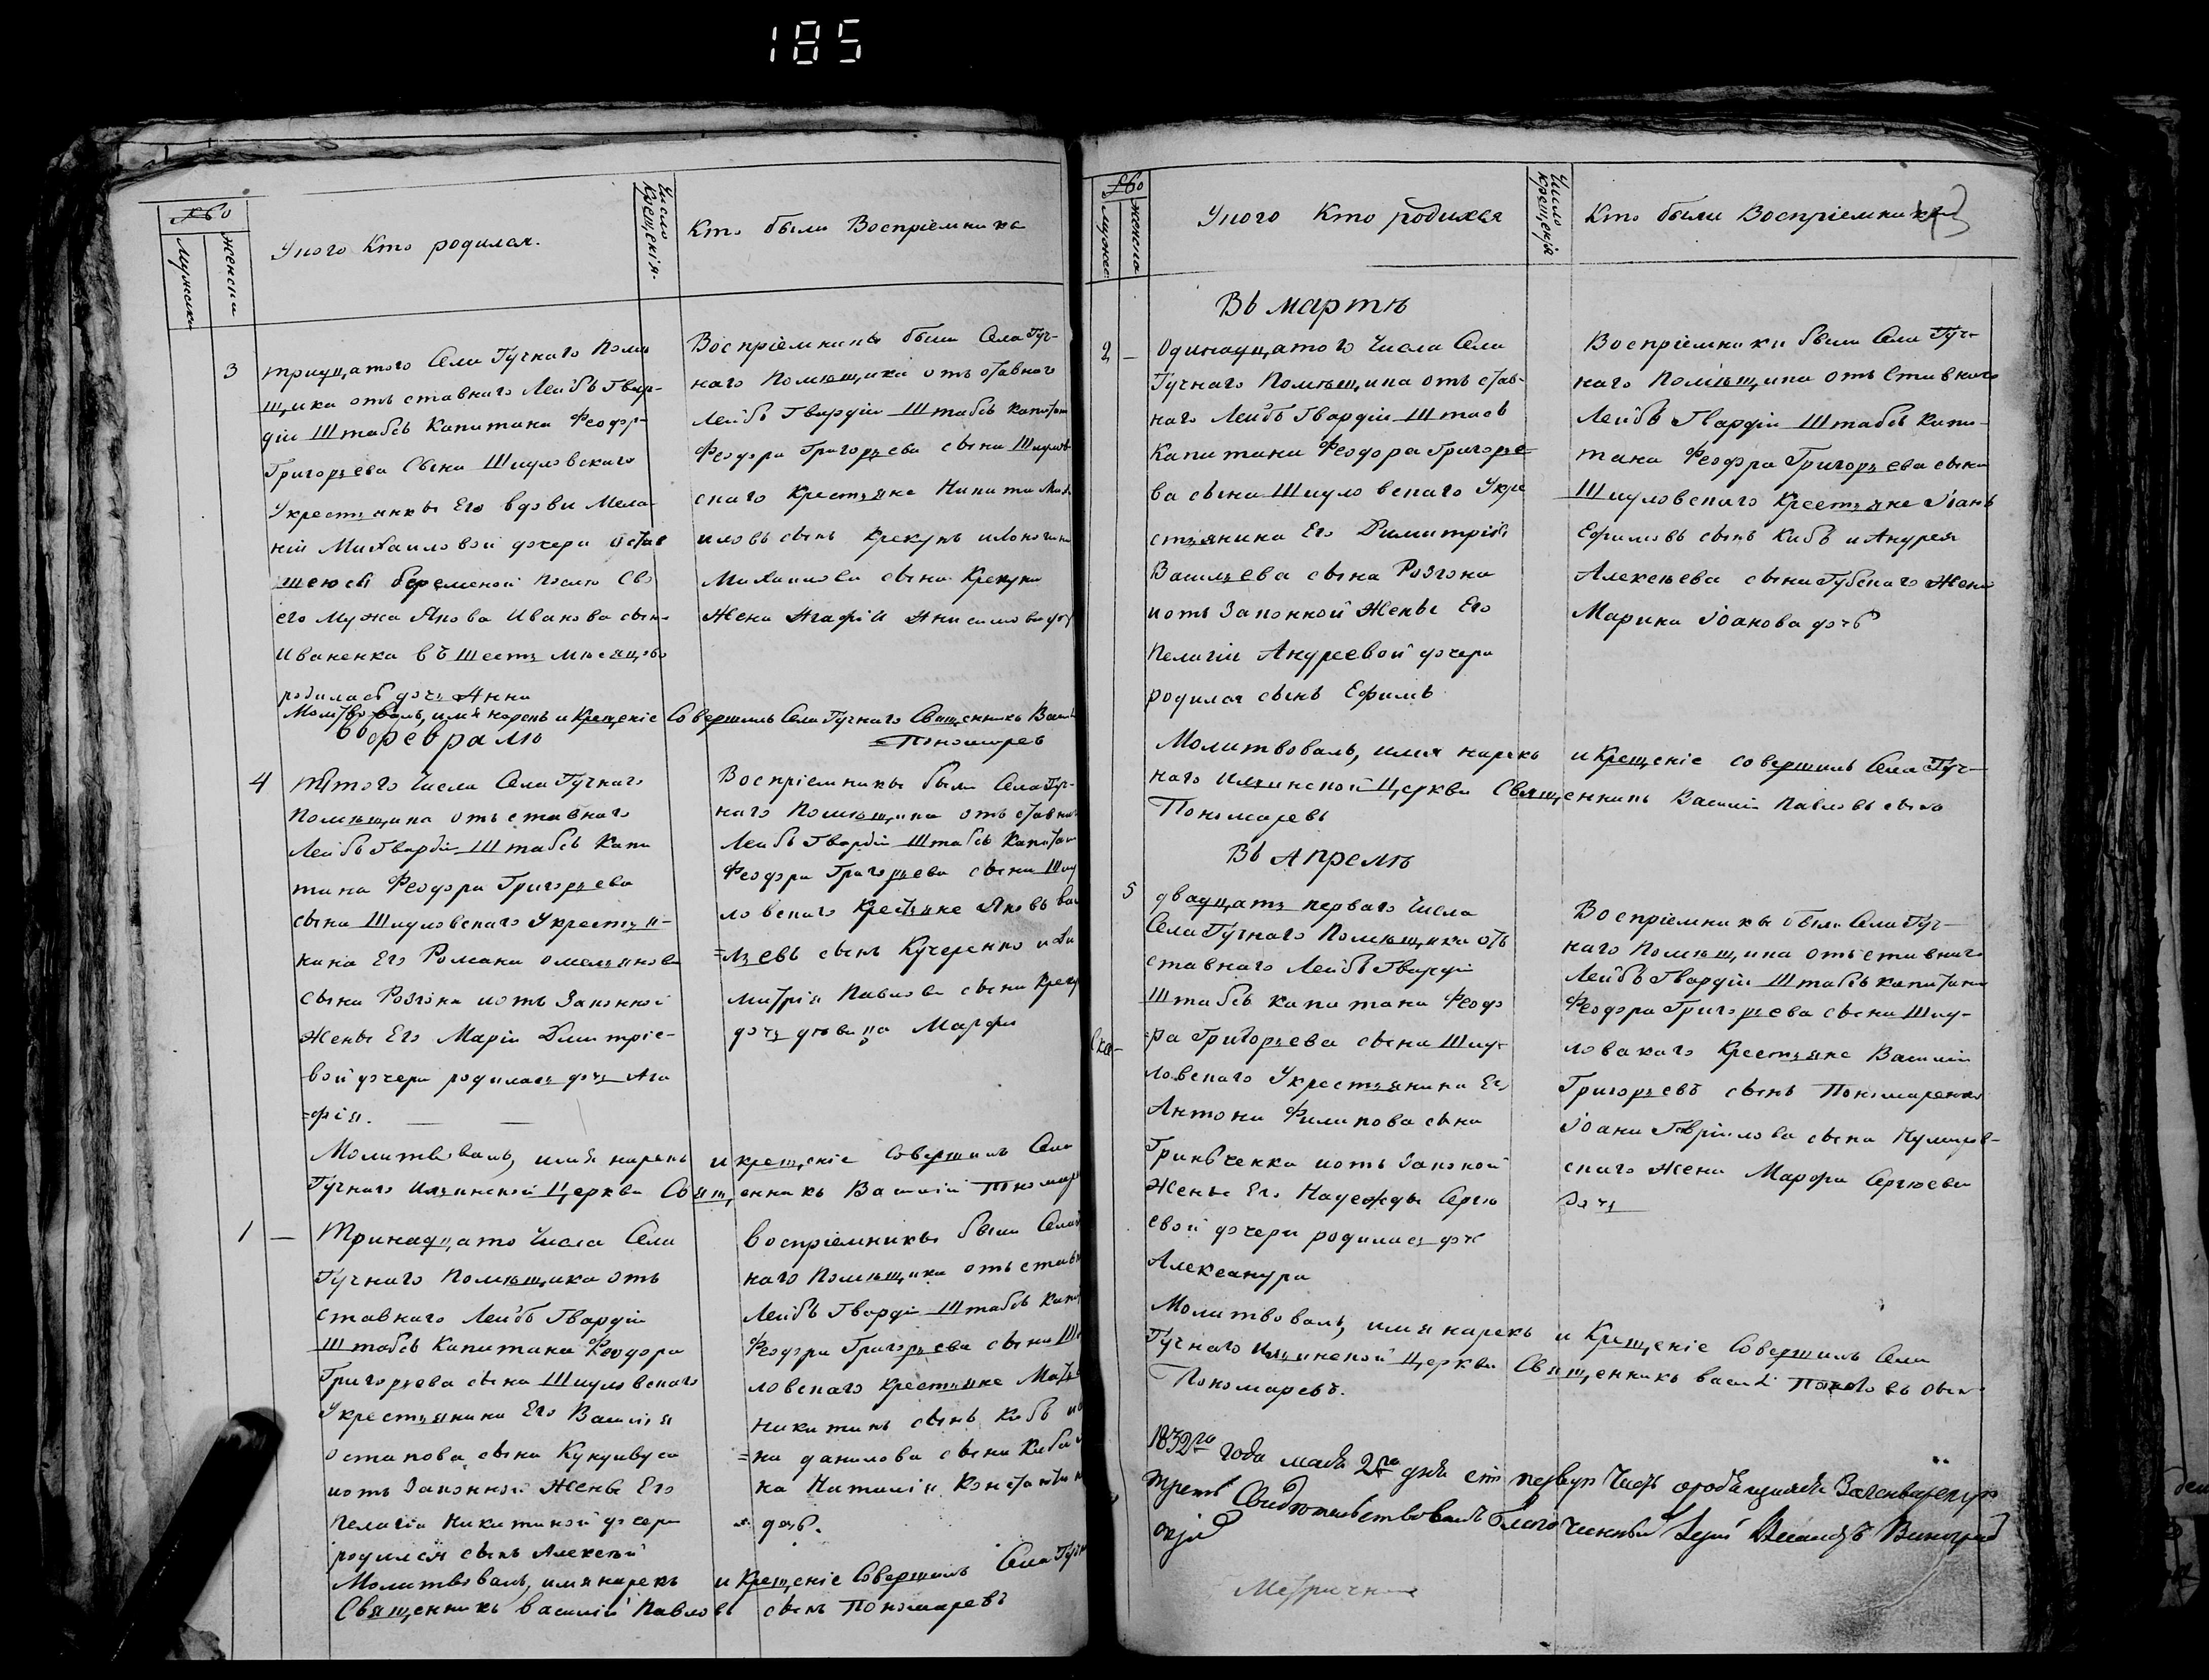 185
№
Мужеска
Женска
У кого Кто родился.
Число Крещенія.
Кто были Воспріемники
3
тридцатого Села Гучнаго Поме
щика отъ ставнаго Лейбъ Гвар-
діи Штабсъ Капитана Феодор-
Григорьева Сына Шидловскаго
Укрестьянки Его вдовы Мела-
ніи Михаиловой дочери остав
шеюся беременой после Сво
его мужа Якова Иванова сына
Иваненка въ шесть месяцовъ
родилась дочь Анна
Воспріемники были Села Гуч-
наго Помѣщика отъ ставного
Лейбъ Гвардіи Штабсъ капитана
Феодора Григорьева сына Шидлов
скаго Крестьяне Никита Миха
иловъ сынъ Крекунъ
Михаилова сына Крекуна
Жена Агафія
Молитвовалъ, имя нарекъ и Крещеніе Совершилъ Села Гучнаго Священникъ Васи
Пономаревъ
Въ февралѣ
4
пятого Числа Села Гучнаго
Помѣщика отъ ставнаго
Лейбъ Гвардіи Штабсъ Капи
тана Феодора Григорьева
сына Шидловскаго Укрестья-
нина Его Романа омельянова
сына Розгона иотъ Законной
Жены Его Маріи Димитріе-
вой дочери родилась дочь Ага
=фія.
Воспріемники были Села Гуч-
наго Помѣщика отъ ставнаго
Лейбъ Гвардіи Штабсъ Капитана
Феодора Григорьева сына Шид
ловскаго Крестьяне Яковъ Ва
=льевъ сынъ Кучеренко и Ди
митрія Павлова сына Креку
дочь дѣвица Марфа
Молитвовалъ, имя нарекъ и крещеніе Совершилъ Села
Гучнаго Ильинской Церкви Священникъ Василій Пономар
1 —
Тринадцато Числа Села
Гучнаго Помѣщика отъ
ставнаго Лейбъ Гвардіи
Штабсъ Капитана Феодора
Григорьева сына Шидловскаго
Укрестьянина Его Василія
остапова сына
иотъ Законной Жены Его
Пелагіи Никитиной дочери
родился сынъ Алексѣй
воспріемники были Села
наго Помѣщика отъ став
Лейбъ Гвардіи Штабсъ Капи
Феодора Григорьева сына Ши
ловскаго крестьяне
Никитинъ сынъ Кибъ
=на данилова сына Киба
на Наталія Константи
дочь.
Молитвовалъ, имя нарекъ и Крещеніе Совершилъ Села Гучн
Священникъ Василій Павловъ сынъ Пономаревъ
№
Мужес
женска
Укого Кто родился
Число крещенія
Кто были Воспріемники
Въ мартѣ
2 —
Одинадцатого Числа Села
Гучнаго Помѣщика отъ став-
наго Лейбъ Гвардіи Штабсъ
Капитана Феодора Григорье
ва сына Шидловскаго Укре
стьянина Его Димитрія
Васильева сына Розгона
иотъ Законной Жены Его
Пелагіи Андреевой дочери
родился сынъ Ефимъ
Воспріемники были Села Гуч-
наго Помѣщика отъ Ставнаго
Лейбъ Гвардіи Штабсъ Капи-
тана Феодора Григорьева сына
Шидловскаго Крестьяне Іоанъ
Ефимовъ сынъ Кибъ и Андрея
Алексѣева сына Губскаго Жена
Марина Іоанова дочь
Молитвовалъ, имя нарекъ и Крещеніе совершилъ Села Гуч-
наго Ильинской Церкви Священникъ Василій Павловъ сынъ
Пономаревъ
Въ Апрелѣ
5
двадцать перваго Числа
Села Гучнаго Помѣщика отъ
ставнаго Лейбъ Гвардіи
Штабсъ капитана Феодо
=ра Григорьева сына Шид-
ловскаго Укрестьянина Его
Антона Филипова сына
Гринченка иотъ Законой
Жены Его Надежды Сергѣ
евой дочери родилась дочь
Александра
Воспріемники были Села Гуч-
наго Помѣщика отъ ставнаго
Лейбъ Гвардіи Штабсъ капитана
Феодора Григорьева сына Шид-
ловскаго Крестьяне Василій
Григорьевъ сынъ Пономаренко
Іоана Гавріилова сына
скаго Жена Марфа Сергѣева
Дочь
Молитвовалъ, имя нарекъ и Крещеніе Совершилъ Села
Гучнаго Ильинской Церкви Священникъ васил Павловъ сынъ
Пономаревъ.
1832го года мая 2го дня
Свидѣтельствовалъ Благочинный